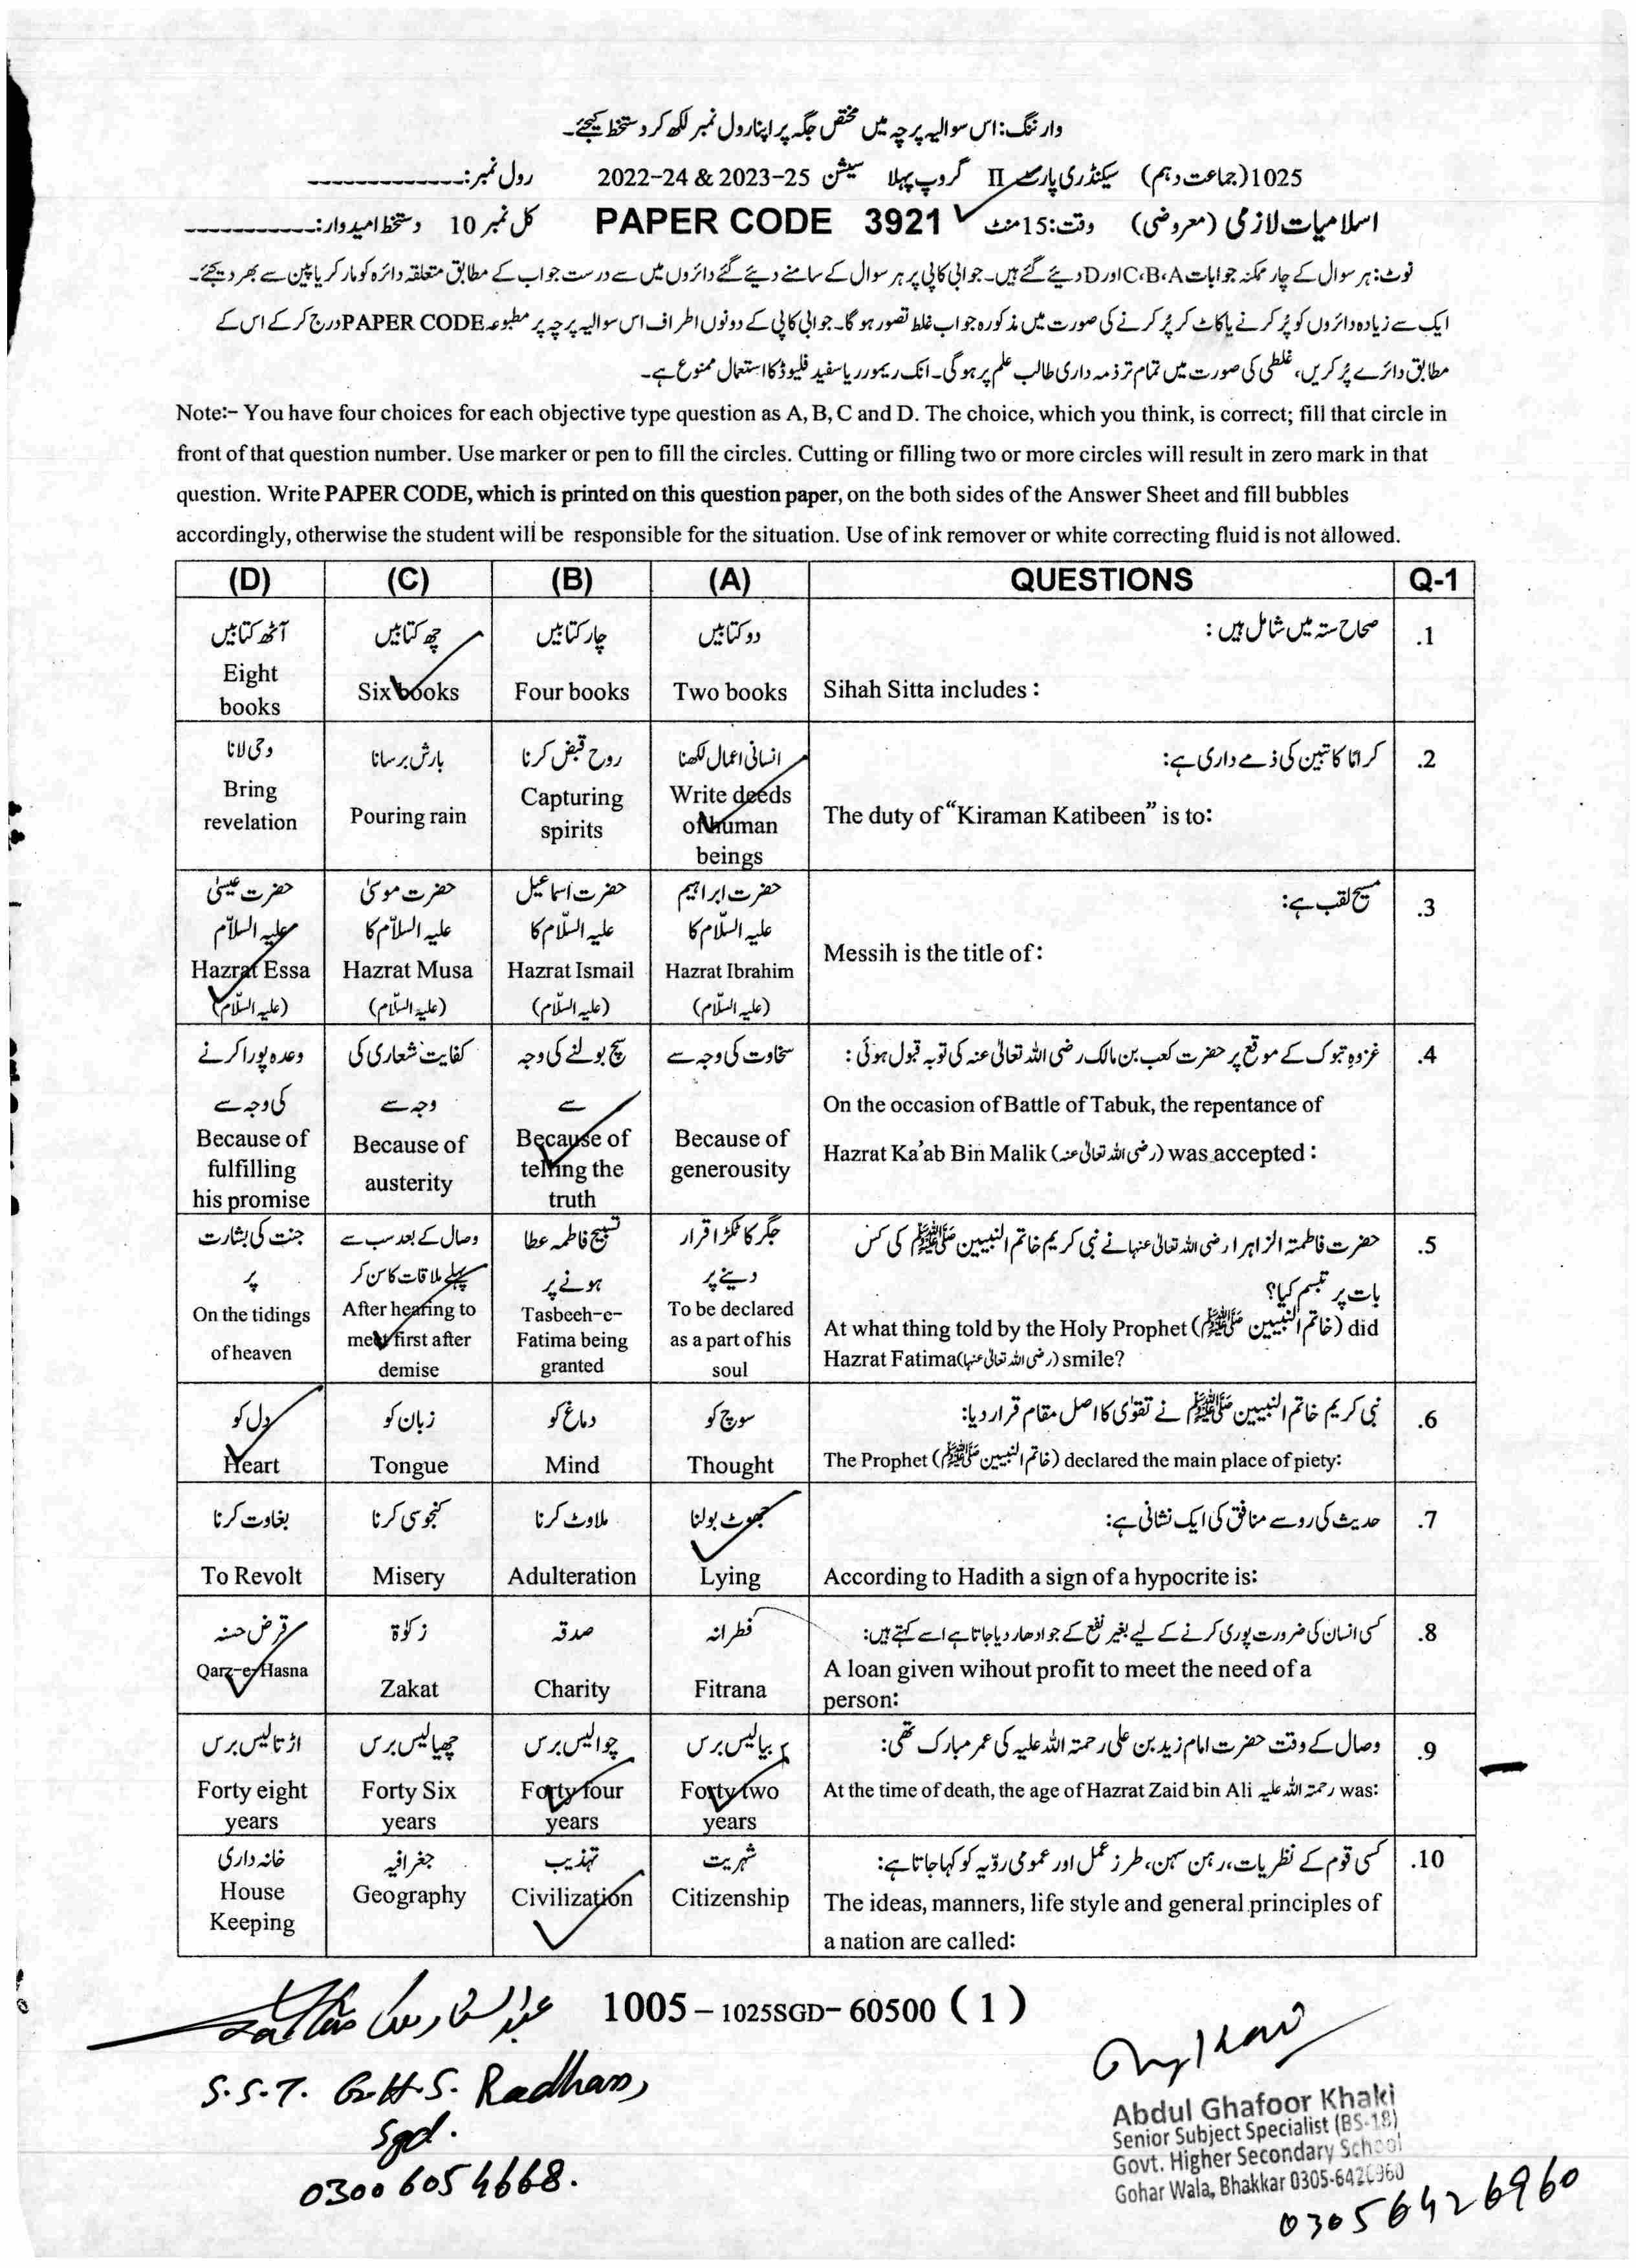 وارننگ: اس سوالیہ پرچہ میں مختص جگہ پر اپنا رول نمبر لکھ کر دستخط کیجئے۔
1025 (جماعت دہم) سیکنڈری پارٹ II گروپ پہلا سیشن 2022-24 & 2023-25 رول نمبر: _____________
اسلامیات لازمی (معروضی) وقت: 15 منٹ PAPER CODE 3921 کل نمبر 10 دستخط امیدوار: _____________
نوٹ: ہر سوال کے چار ممکنہ جوابات C، B، A اور D دیئے گئے ہیں۔ جوابی کاپی پر ہر سوال کے سامنے دیئے گئے دائروں میں سے درست جواب کے مطابق متعلقہ دائرہ کو مارکر یا پین سے بھر دیجئے۔
ایک سے زیادہ دائروں کو پُر کرنے یا کاٹ کر پُر کرنے کی صورت میں مذکورہ جواب غلط تصور ہو گا۔ جوابی کاپی کے دونوں اطراف اس سوالیہ پرچہ پر مطبوعہ PAPER CODE درج کر کے اس کے
مطابق دائرے پُر کریں، غلطی کی صورت میں تمام تر ذمہ داری طالب علم پر ہو گی۔ انک ریمور یا سفید فلیوڈ کا استعمال ممنوع ہے۔
Note:- You have four choices for each objective type question as A, B, C and D. The choice, which you think, is correct; fill that circle in
front of that question number. Use marker or pen to fill the circles. Cutting or filling two or more circles will result in zero mark in that
question. Write PAPER CODE, which is printed on this question paper, on the both sides of the Answer Sheet and fill bubbles
accordingly, otherwise the student will be responsible for the situation. Use of ink remover or white correcting fluid is not allowed.
(D) (C) (B) (A) QUESTIONS Q-1
.1 صحاح ستہ میں شامل ہیں :
دو کتابیں چار کتابیں چھ کتابیں آٹھ کتابیں
Sihah Sitta includes :
Two books
Four books
Six books
Eight books
.2 کراماً کاتبین کی ذمے داری ہے:
انسانی اعمال لکھنا روح قبض کرنا بارش برسانا وحی لانا
The duty of “Kiraman Katibeen” is to:
Write deeds of human beings
Capturing spirits
Pouring rain
Bring revelation
.3 مسیح لقب ہے:
حضرت ابراہیم علیہ السلّام کا
حضرت اسماعیل علیہ السلّام کا
حضرت موسیٰ علیہ السلّام کا
حضرت عیسیٰ علیہ السلّام
Messih is the title of :
Hazrat Ibrahim (علیہ السلّام)
Hazrat Ismail (علیہ السلّام)
Hazrat Musa (علیہ السلّام)
Hazrat Essa (علیہ السلّام)
.4 غزوہ تبوک کے موقع پر حضرت کعب بن مالک رضی اللہ تعالیٰ عنہ کی توبہ قبول ہوئی :
سخاوت کی وجہ سے
سچ بولنے کی وجہ سے
کفایت شعاری کی وجہ سے
وعدہ پورا کرنے کی وجہ سے
On the occasion of Battle of Tabuk, the repentance of
Hazrat Ka'ab Bin Malik (رضی اللہ تعالیٰ عنہ) was accepted :
Because of generousity
Because of telling the truth
Because of austerity
Because of fulfilling his promise
.5 حضرت فاطمتہ الزاہرا رضی اللہ تعالیٰ عنہا نے نبی کریم خاتم النبیین ﷺ کی کس
بات پر تبسم کیا؟
جگر کا ٹکڑا قرار دینے پر
تسبیح فاطمہ عطا ہونے پر
وصال کے بعد سب سے پہلے ملاقات کا سن کر
جنت کی بشارت پر
At what thing told by the Holy Prophet (خاتم النبیین ﷺ) did
Hazrat Fatima (رضی اللہ تعالیٰ عنہا) smile?
To be declared as a part of his soul
Tasbeeh-e-Fatima being granted
After hearing to meet first after demise
On the tidings of heaven
.6 نبی کریم خاتم النبیین ﷺ نے تقوٰی کا اصل مقام قرار دیا:
سوچ کو دماغ کو زبان کو دل کو
The Prophet (خاتم النبیین ﷺ) declared the main place of piety:
Thought
Mind
Tongue
Heart
.7 حدیث کی رو سے منافق کی ایک نشانی ہے:
جھوٹ بولنا ملاوٹ کرنا کنجوسی کرنا بغاوت کرنا
According to Hadith a sign of a hypocrite is:
Lying
Adulteration
Misery
To Revolt
.8 کسی انسان کی ضرورت پوری کرنے کے لیے بغیر نفع کے جو ادھار دیا جاتا ہے اسے کہتے ہیں:
فطرانہ صدقہ زکوٰۃ قرض حسنہ
A loan given wihout profit to meet the need of a
person:
Fitrana
Charity
Zakat
Qarz-e-Hasna
.9 وصال کے وقت حضرت امام زید بن علی رحمتہ اللہ علیہ کی عمر مبارک تھی:
بیالیس برس چوالیس برس چھیالیس برس اڑتالیس برس
At the time of death, the age of Hazrat Zaid bin Ali رحمتہ اللہ علیہ was:
Forty two years
Forty four years
Forty Six years
Forty eight years
.10 کسی قوم کے نظریات، رہن سہن، طرز عمل اور عمومی رویّہ کو کہا جاتا ہے:
شہریت تہذیب جغرافیہ خانہ داری
The ideas, manners, life style and general principles of
a nation are called:
Citizenship
Civilization
Geography
House Keeping
1005 – 1025SGD– 60500 ( 1 )
S.S.T. G.H.S. Radhan,
Sgd.
0300 6054668.
Abdul Ghafoor Khaki
Senior Subject Specialist (BS-18)
Govt. Higher Secondary School
Gohar Wala, Bhakkar 0305-6426960
03056426960